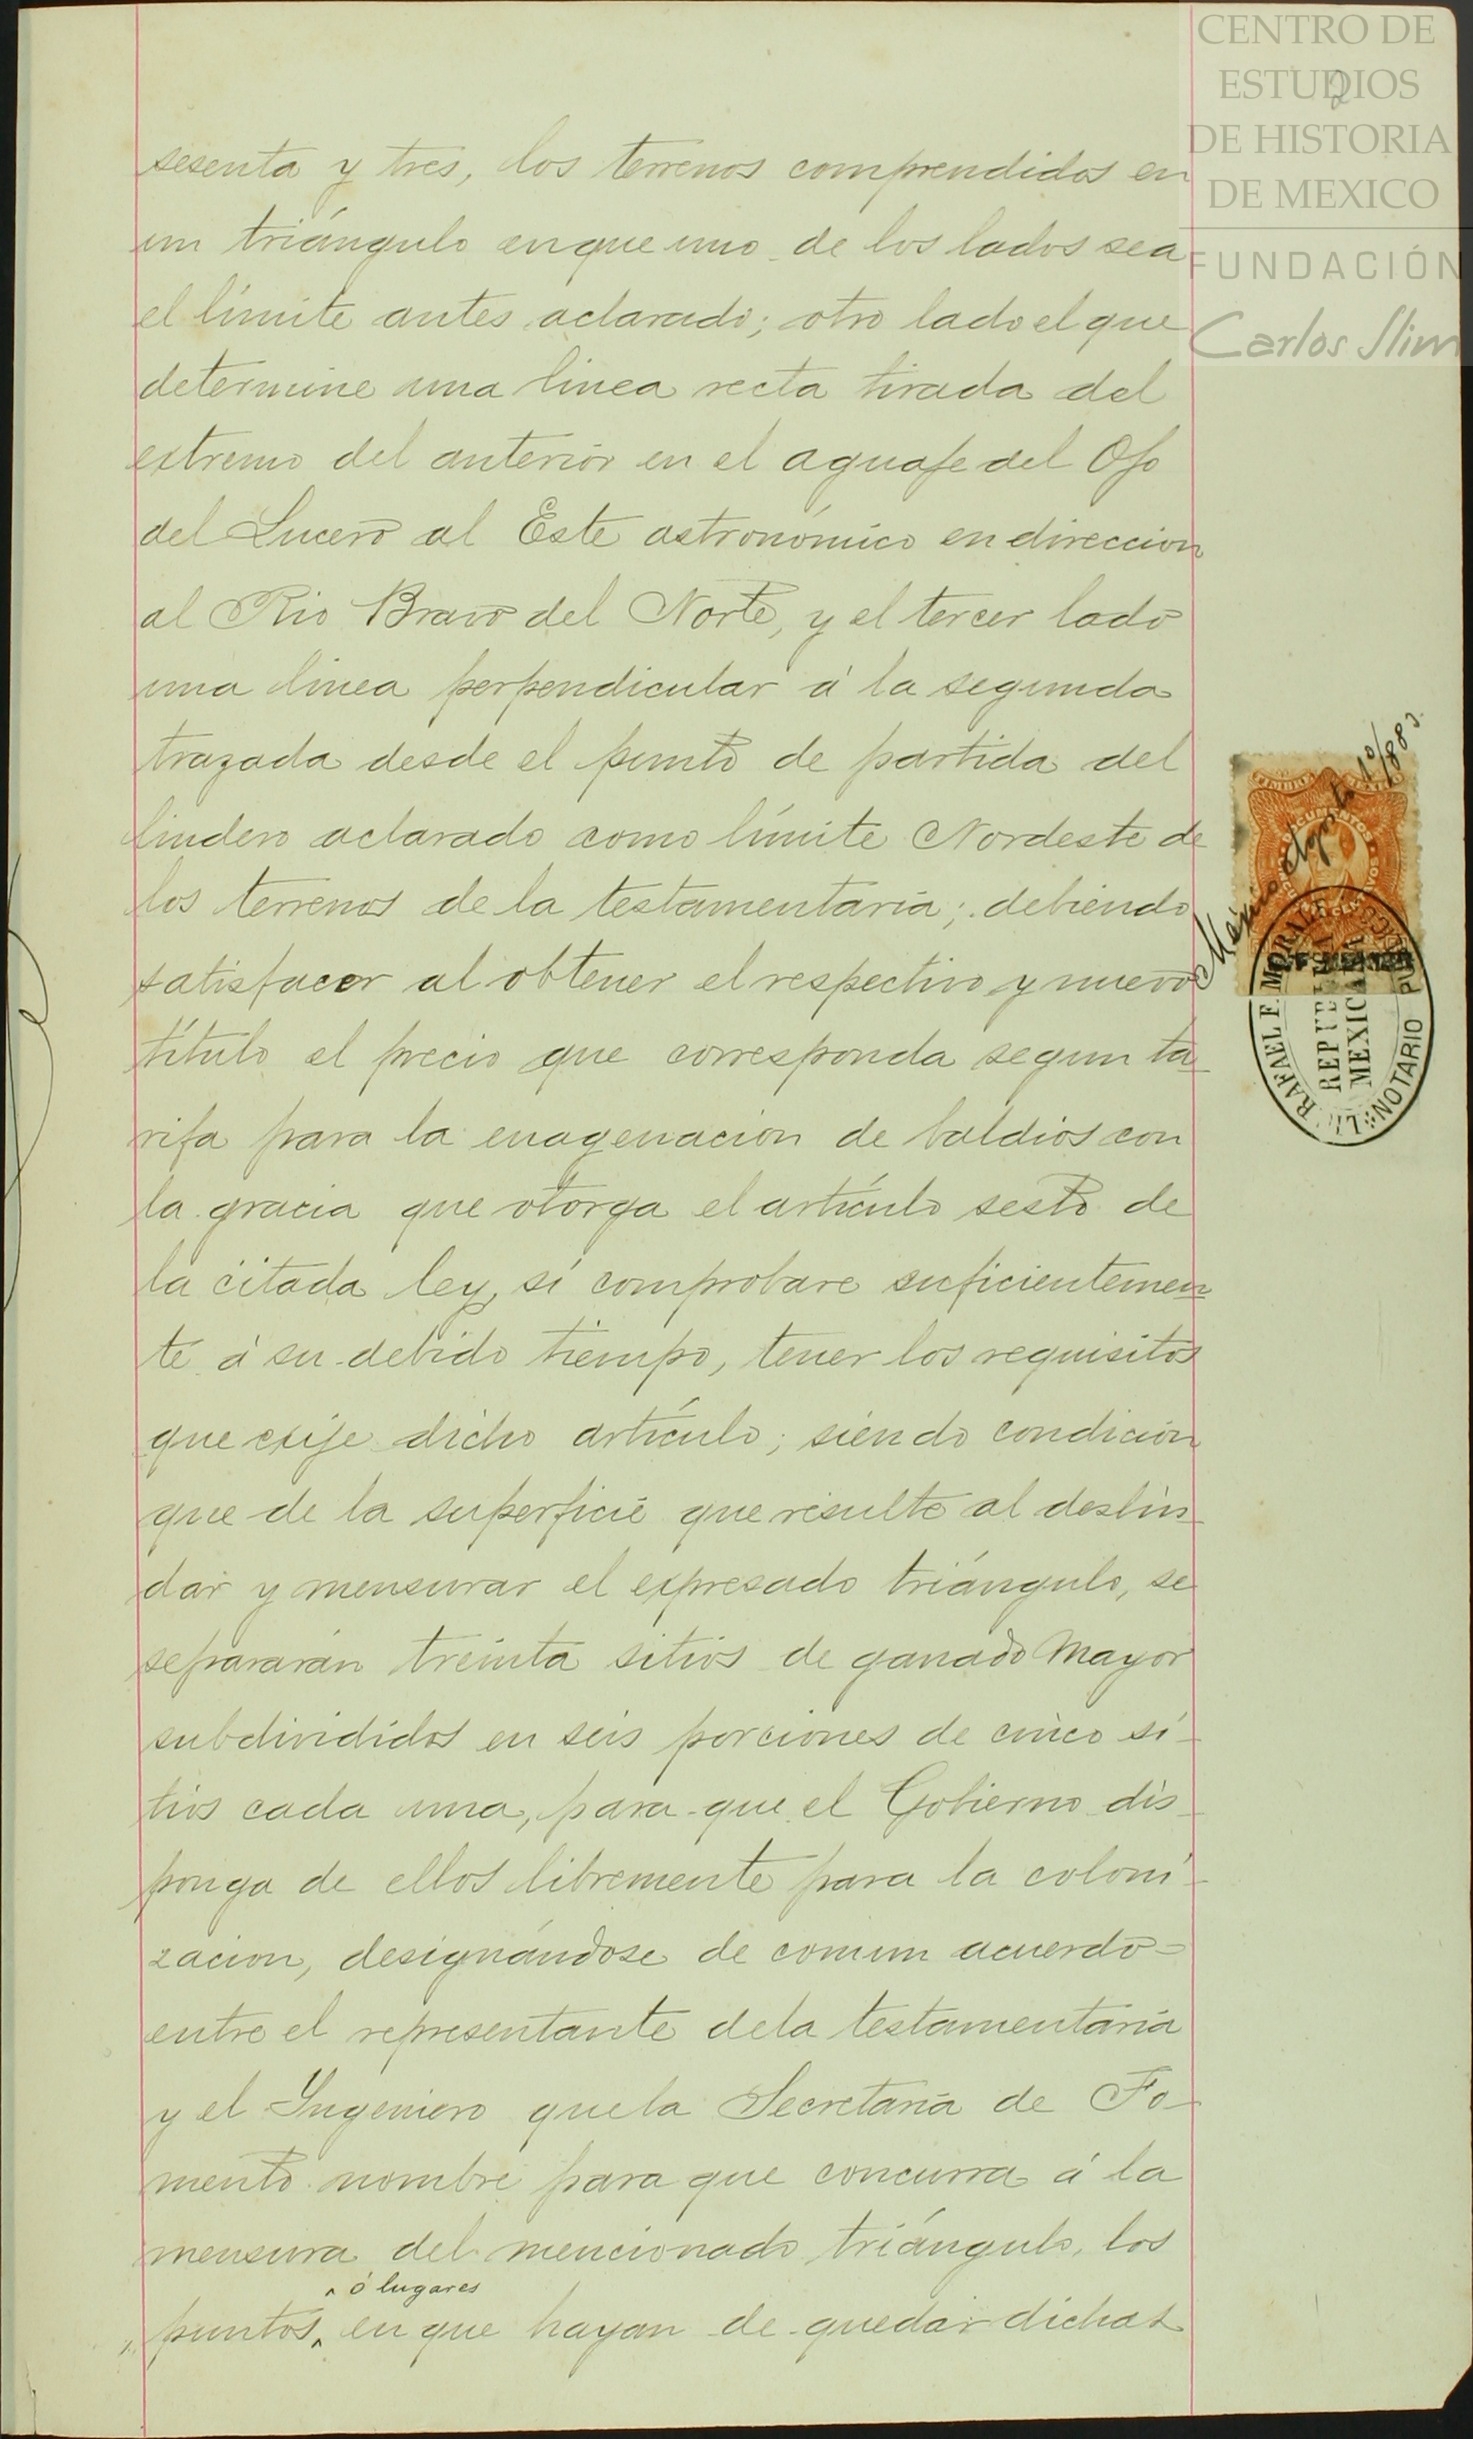 CENTRO DE
ESTUDIOS
DE HISTORIA
DE MEXICO
FUNDACIÓN
Carlos Slim
2
sesenta y tres, los terrenos comprendidos en
un triángulo en que uno de los lados sea
el límite antes aclarado; otro lado el que
determine una linea recta tirada del
extremo del anterior en el aguaje del Ojo
del Lucero al Este astronómico en direccion
al Rio Bravo del Norte, y el tercer lado
una linea perpendicular á la segunda
trazada desde el punto de partida del
lindero aclarado como límite Nordeste de
los terrenos de la testamentaría; debiendo
satisfacer al obtener el respectivo y nuevo
título el precio que corresponda segun ta-
rifa para la enagenacion de baldios con
la gracia que otorga el artículo sesto de
la citada ley, si comprobare suficientemen-
te á su debido tiempo, tener los requisitos
que exije dicho artículo; siendo condicion
que de la superficie que resulte al deslin-
dar y mensurar el expresado triángulo, se
separarán treinta sitios de ganado mayor
subdivididos en seis porciones de cinco si-
tios cada una, para que el Gobierno dis-
ponga de ellos libremente para la coloni-
zacion, designándose de comun acuerdo=
entre el representante de la testamentaría
y el Ingeniero que la Secretaría de Fo-
mento nombre para que concurra á la
mensura del mencionado triángulo, los
^ ó lugares
puntos ^ en que hayan de quedar dichas
México Agosto 1º/883
DOCUMENTOS
RAFAEL F. MORALES
REPUBLICA
MEXICANA
NOTARIO PUBLICO